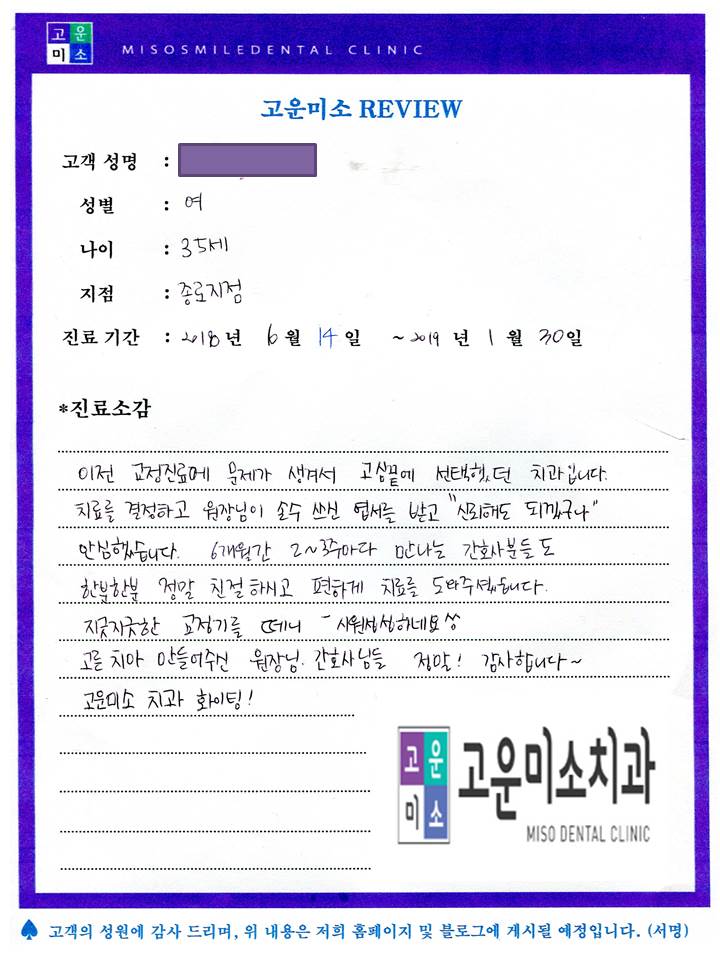 고운
미소
MISOSMILEDENTAL CLINIC
고운미소 REVIEW
고객 성명 :
성별 : 여
나이 : 35세
지점 : 종로지점
진료 기간 : 2018년 6월 14일 ~ 2019년 1월 30일
*진료소감
이전 교정진료에 문제가 생겨서 고심끝에 선택했던 치과입니다.
치료를 결정하고 원장님이 손수 쓰신 엽서를 받고 "신뢰해도 되겠구나"
안심했습니다. 6개월간 2~3주마다 만나는 간호사분들도
한분한분 정말 친절하시고 편하게 치료를 도와주셨습니다.
지긋지긋한 교정기를 떼니 - 시원섭섭하네요^^
고른 치아 만들어주신 원장님. 간호사님들 정말! 감사합니다~
고운미소 치과 화이팅!
고운
미소
고운미소치과
MISO DENTAL CLINIC
♠ 고객의 성원에 감사 드리며, 위 내용은 저희 홈페이지 및 블로그에 게시될 예정입니다. (서명)